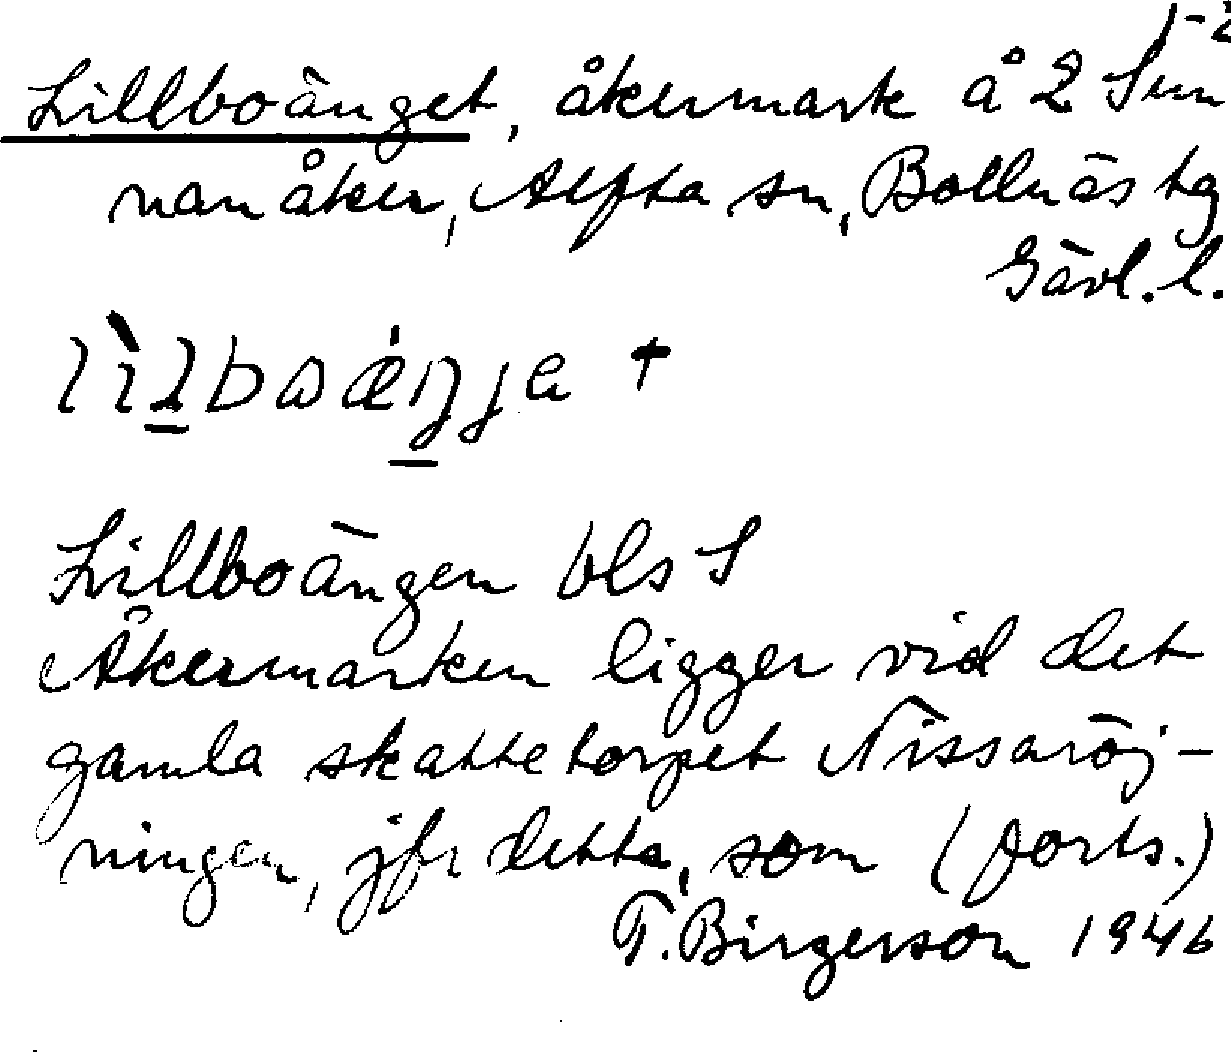 1-2
Lillboänget, åkermark å 2 Sun
nanåker, Alfta sn, Bollnäs tg
Gävl. l.
Lillboängen bls S
Åkermarken ligger vid det
gamla skattetorpet Nissaröj-
ningen, jfr detta, som (forts.)
T. Birgerson 1946